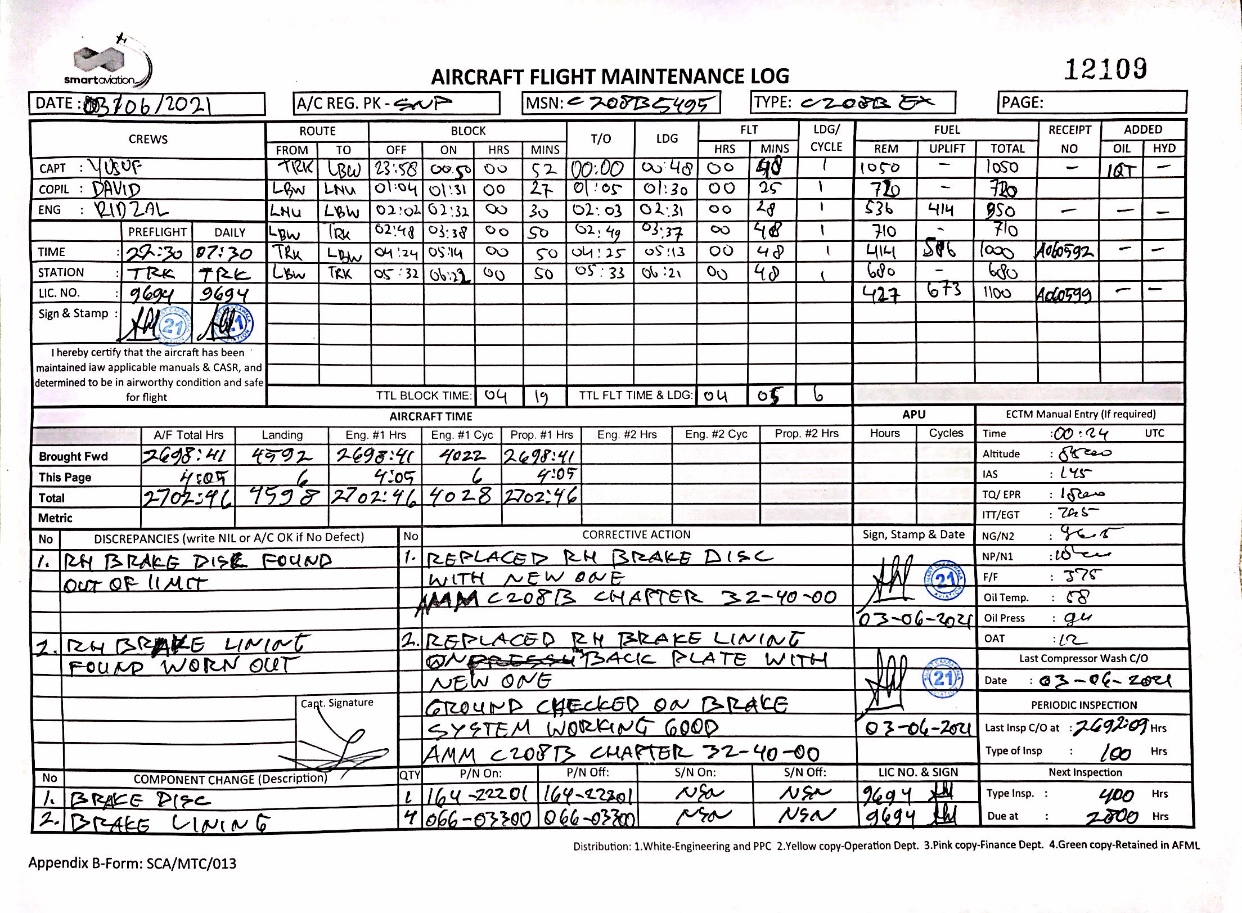 smartaviation
AIRCRAFT FLIGHT MAINTENANCE LOG
12109
DATE : 03/06/2021 A/C REG. PK - SNP MSN: C208B5495 TYPE: C208B EX PAGE:
CREWS ROUTE BLOCK T/O LDG FLT LDG/ CYCLE FUEL RECEIPT NO ADDED
FROM TO OFF ON HRS MINS HRS MINS REM UPLIFT TOTAL OIL HYD
CAPT : YUSUF TRK LBW 23:58 00:50 00 52 00:00 00:48 00 48 1 1050 - 1050 1QT -
COPIL : DAVID LBW LNU 01:04 01:31 00 27 01:05 01:30 00 25 1 720 - 720 - -
ENG : RIDZAL LNU LBW 02:02 02:32 00 30 02:03 02:31 00 28 1 536 414 950 - - -
PREFLIGHT DAILY LBW TRK 02:48 03:38 00 50 02:49 03:37 00 48 1 710 710
TIME : 22:30 07:30 TRK LBW 04:24 05:14 00 50 04:25 05:13 00 48 1 414 586 1000 A060592 - -
STATION : TRK TRK LBW TRK 05:32 06:22 00 50 05:33 06:21 00 48 1 680 - 680
LIC. NO. : 9694 9694 427 673 1100 A060599 - -
Sign & Stamp : 21 21
I hereby certify that the aircraft has been
maintained iaw applicable manuals & CASR, and
determined to be in airworthy condition and safe
for flight
TTL BLOCK TIME: 04 19 TTL FLT TIME & LDG: 04 05 6
AIRCRAFT TIME APU ECTM Manual Entry (If required)
A/F Total Hrs Landing Eng. #1 Hrs Eng. #1 Cyc Prop. #1 Hrs Eng. #2 Hrs Eng. #2 Cyc Prop. #2 Hrs Hours Cycles Time :00:24 UTC
Brought Fwd 2698:41 4592 2698:41 4022 2698:41 Altitude :
This Page 4:05 6 4:05 6 4:05 IAS : 145
Total 2702:46 4598 2702:46 4028 2702:46 TQ/ EPR :
Metric ITT/EGT :
No DISCREPANCIES (write NIL or A/C OK if No Defect) No CORRECTIVE ACTION Sign, Stamp & Date NG/N2 :
1. RH BRAKE DISC FOUND 1. REPLACED RH BRAKE DISC NP/N1 :
OUT OF LIMIT WITH NEW ONE 21 F/F : 375
AMM C208B CHAPTER 32-40-00 Oil Temp. : 58
03-06-2021 Oil Press :
2. RH BRAKE LINING 2. REPLACED RH BRAKE LINING OAT : 12
FOUND WORN OUT ON BACK PLATE WITH Last Compressor Wash C/O
NEW ONE 21 Date : 03-06-2021
Capt. Signature GROUND CHECKED ON BRAKE PERIODIC INSPECTION
SYSTEM WORKING GOOD 03-06-2021 Last Insp C/O at : 2692:09 Hrs
AMM C208B CHAPTER 32-40-00 Type of Insp : 100 Hrs
No COMPONENT CHANGE (Description) QTY P/N On: P/N Off: S/N On: S/N Off: LIC NO. & SIGN Next Inspection
1. BRAKE DISC 1 164-22201 164-22301 NSN NSN 9694 Type Insp. : 400 Hrs
2. BRAKE LINING 4 066-03300 066-03300 NSN NSN 9694 Due at : 2800 Hrs
Distribution: 1.White-Engineering and PPC 2.Yellow copy-Operation Dept. 3.Pink copy-Finance Dept. 4.Green copy-Retained in AFML
Appendix B-Form: SCA/MTC/013